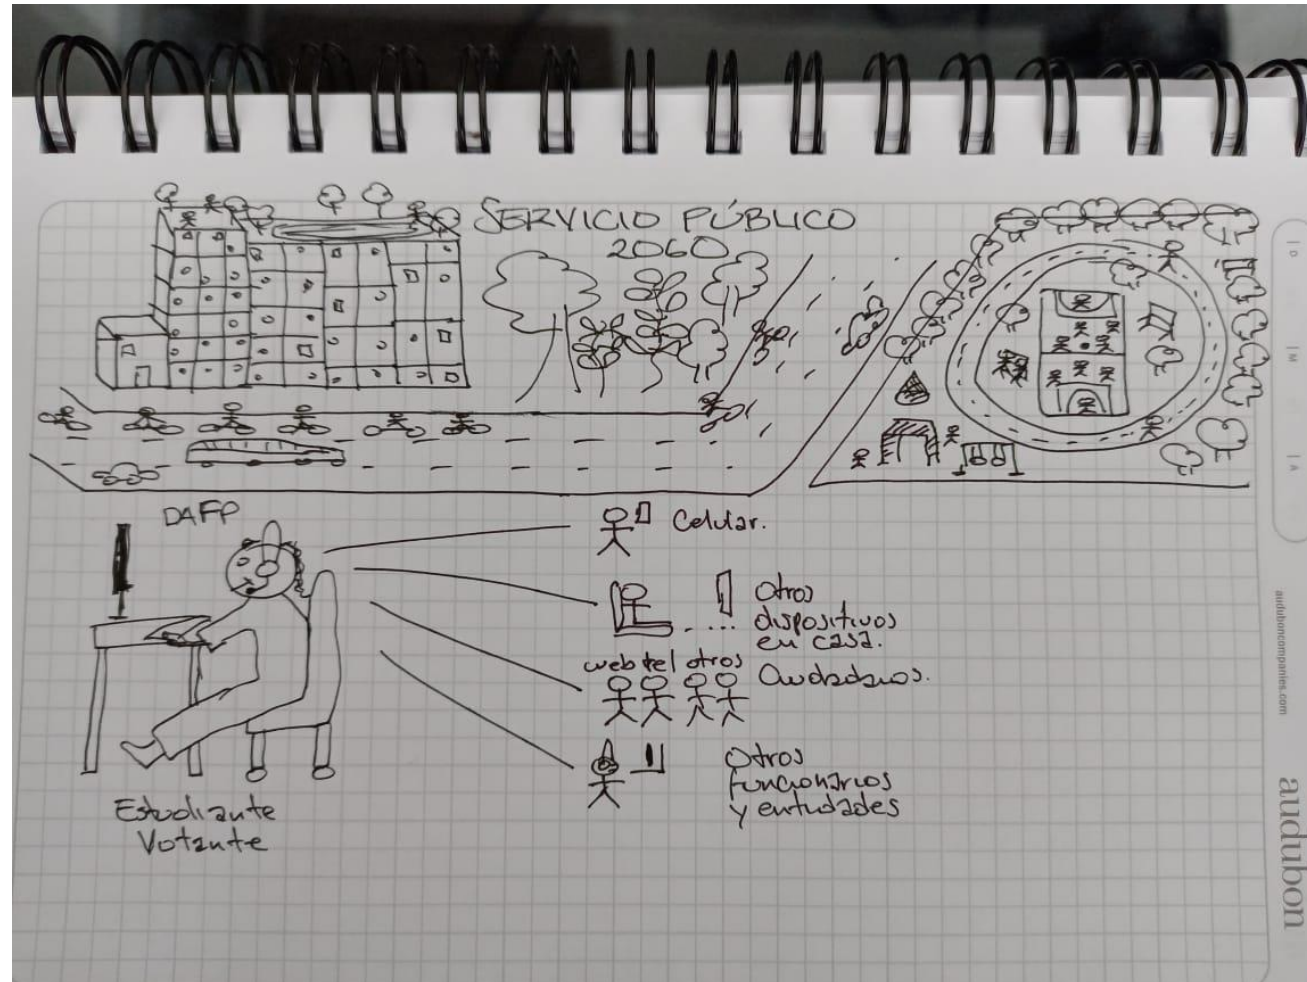 SERVICIO PÚBLICO
2060
DAFP
Celular.
Otros
dispositivos
en casa.
web tel otros
Ciudadanos.
Otros
funcionarios
y entidades
Estudiante
Votante
D
M
A
auduboncompanies.com
audubon